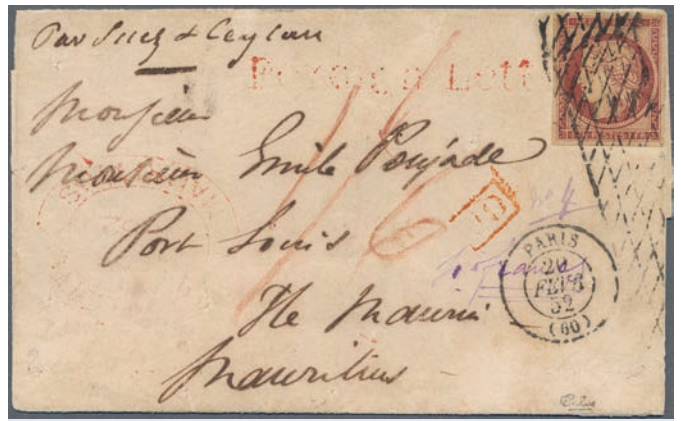 Par Suez & Ceylan
Foreign Lett
Monsieur
Monsieur Emile Poujade
Port Louis
Ile Maurice
Mauritius
1/6
PD
No 4
PARIS
FEVR
52
(60)
POSTES